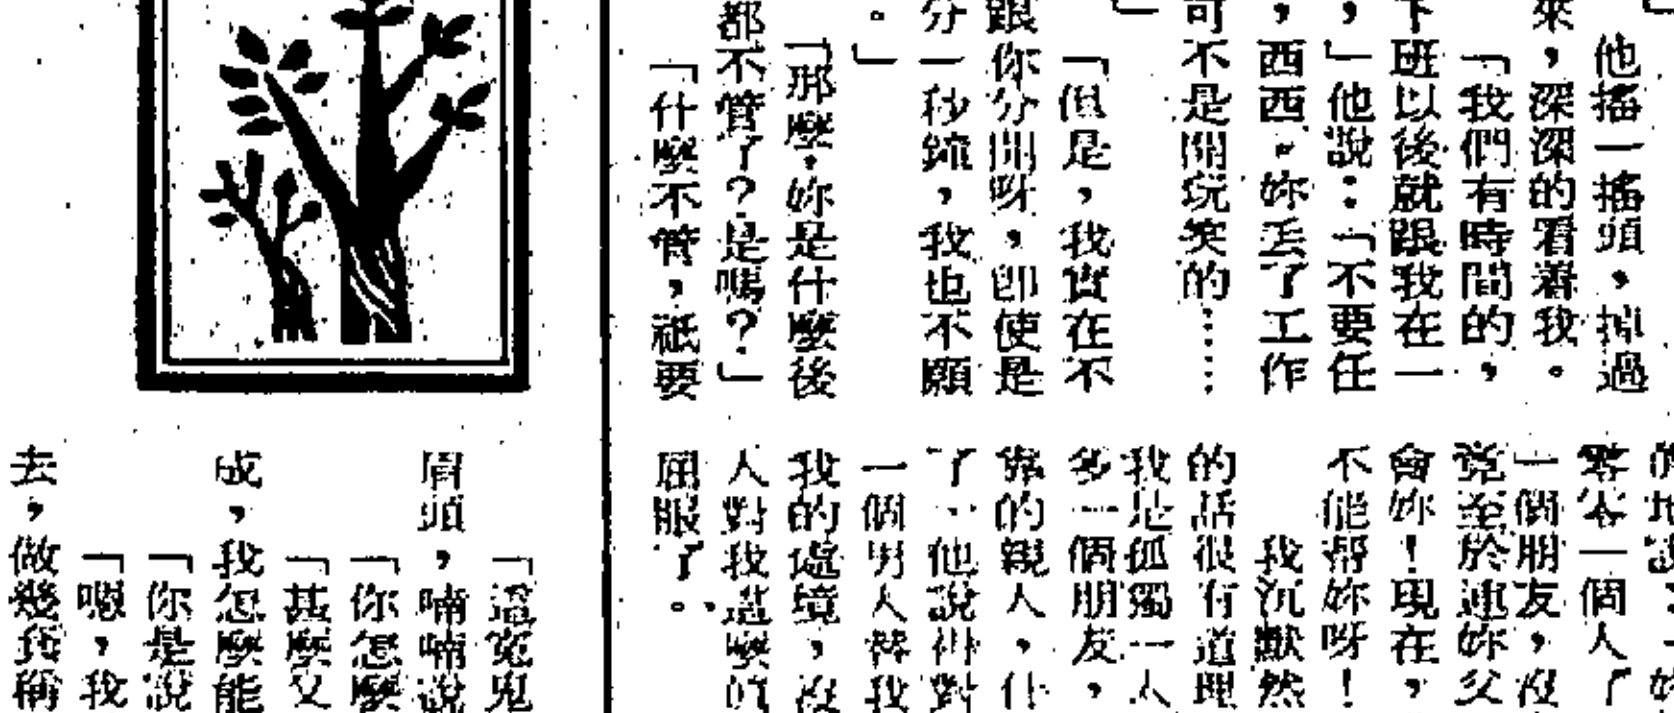 他搖一搖頭，掉過
來，深深的看着我。
「我們有時間的，
下班以後就跟我在一
，」他說：「不要任
，西西。妳丟了工作
可不是開玩笑的……
」
「但是，我實在不
跟你分開呀，即使是
分一秒鐘，我也不願
。」
「那麼，妳是什麼後
都不管了？是嗎？」
「什麼不管，祇要
零零一個人了
一個朋友，沒
竟至於連妳父
會妳！現在，
不能帮妳呀！
我沉默然
的話很有道理
我是孤獨一人
多一個朋友，
靠的親人，什
了，他說得對
一個男人替我
我的處境，沒
人對我這麼
屈服了。
「這冤鬼
眉頭，喃喃說
「你怎麼
「甚麼又
成，我怎麼能
「你是說
「嗯，我
去，做幾套稱